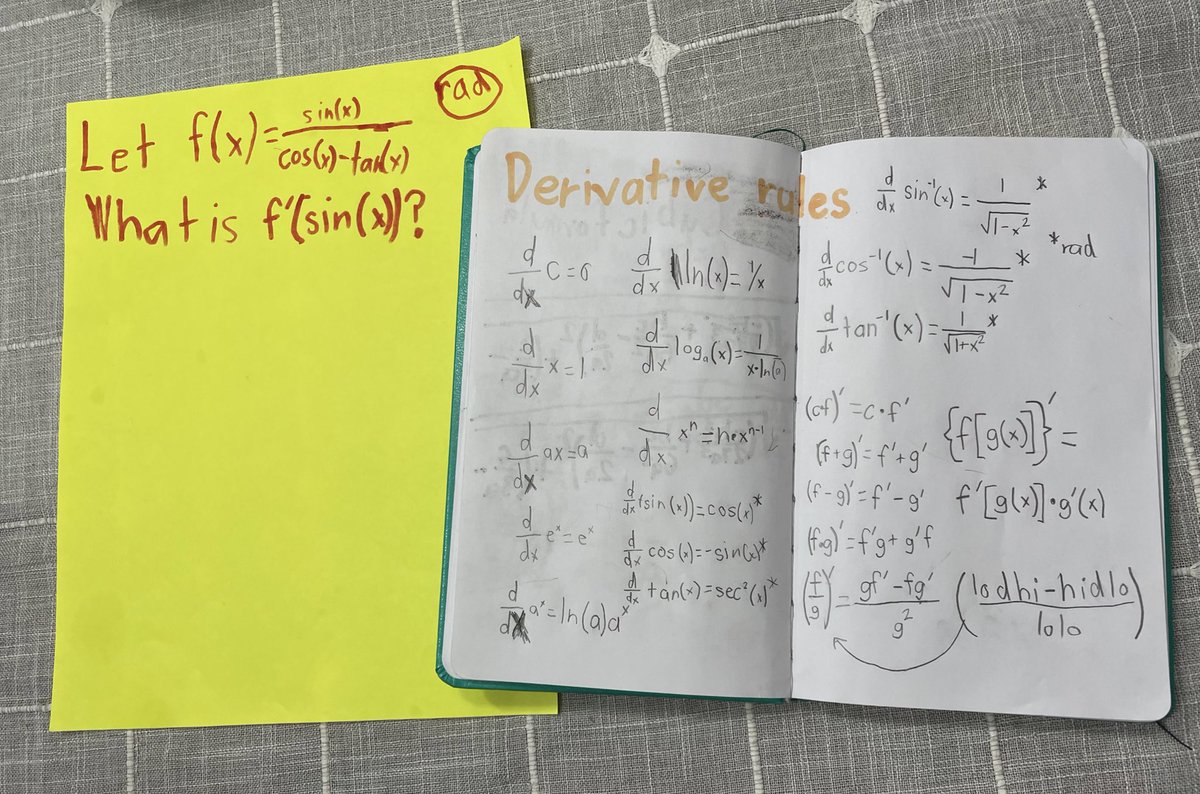 rad
Let f(x)=sin(x)/cos(x)-tan(x)
What is f'(sin(x))?
Derivative rules
d/dx c=0
d/dx x=1
d/dx ax=a
d/dx eˣ=eˣ
d/dx aˣ=ln(a)aˣ
d/dx ln(x)=1/x
d/dx logₐ(x)=1/x·ln(a)
d/dx xⁿ=n•xⁿ⁻¹
d/dx (sin(x))=cos(x)*
d/dx cos(x)=-sin(x)*
d/dx tan(x)=sec²(x)*
d/dx sin⁻¹(x)=1/√1-x² *
*rad
d/dx cos⁻¹(x)=-1/√1-x² *
d/dx tan⁻¹(x)=1/√1+x² *
(c•f)'=c•f'
(f+g)'=f'+g'
(f-g)'=f'-g'
(f•g)'=f'g+g'f
(f/g)'=gf'-fg'/g² (lodhi-hidlo/lolo)
{f[g(x)]}'=
f'[g(x)]•g'(x)